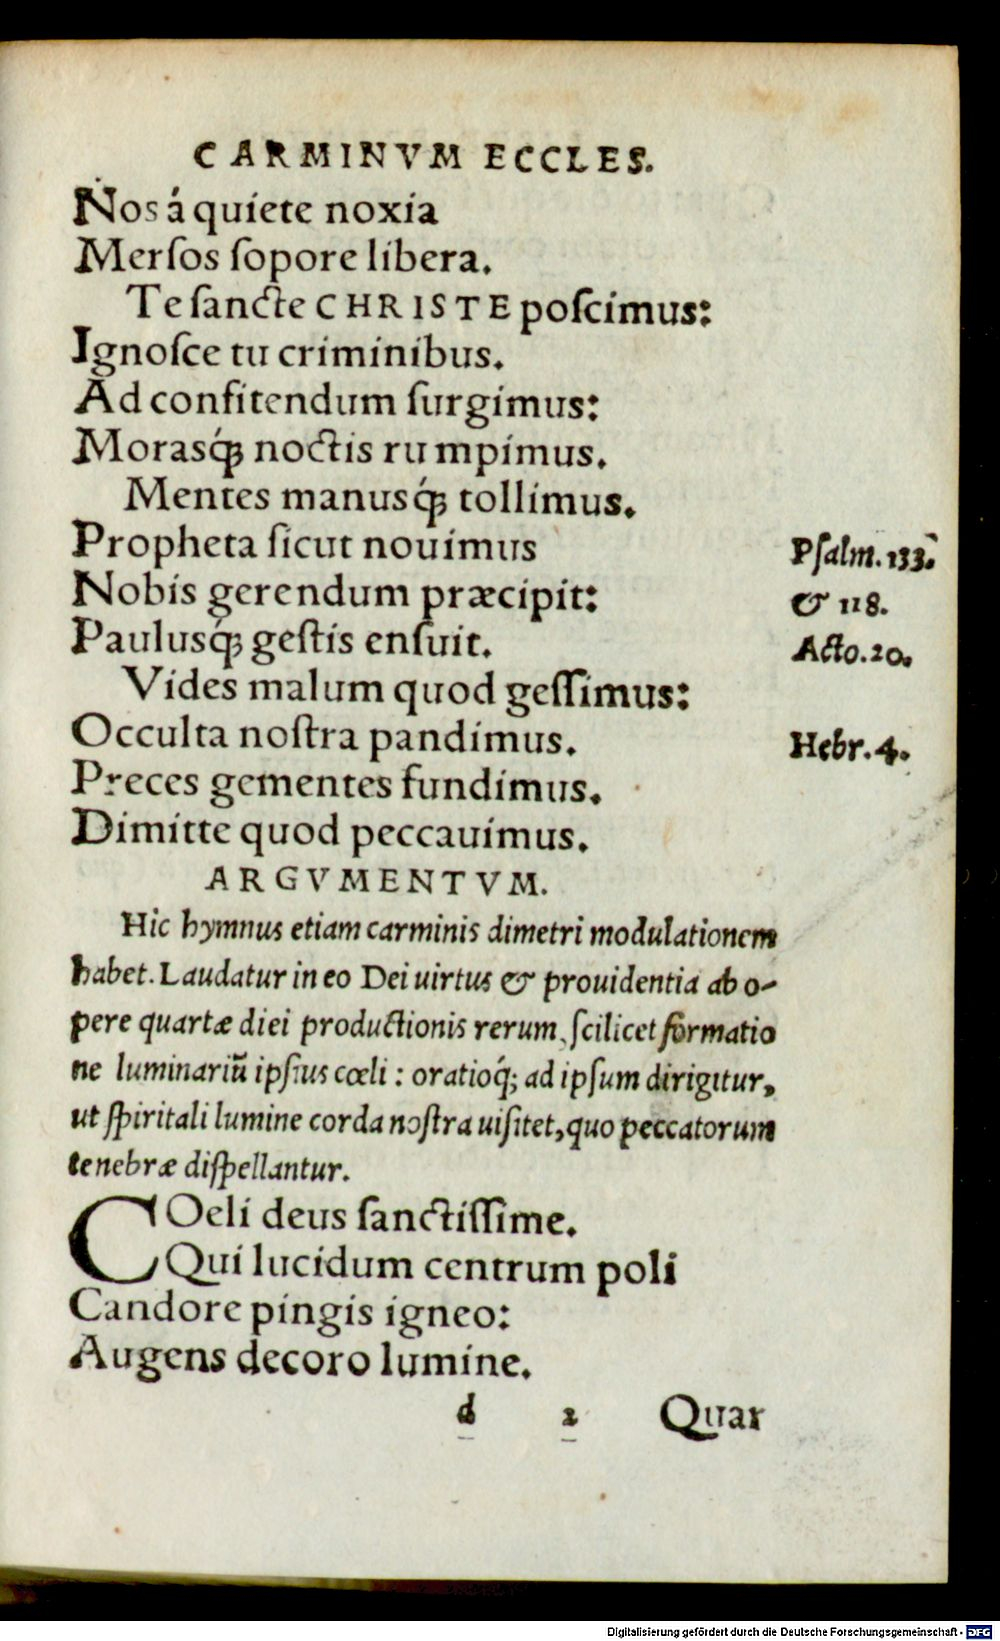 CARMINVM ECCLES.
Nos á quiete noxia
Merſos ſopore libera.
Te ſancte CHRISTE poſcimus:
Ignoſce tu criminibus.
Ad confitendum ſurgimus:
Morasq́ꝫ noctis rumpimus.
Mentes manusq́ꝫ tollimus.
Propheta ſicut nouimus
Psalm. 133.
Nobis gerendum præcipit:
& 118.
Paulusq́ꝫ geſtis enſuit.
Acto. 20.
Vides malum quod geſſimus:
Occulta noſtra pandimus.
Hebr. 4.
Preces gementes fundimus.
Dimitte quod peccauimus.
ARGVMENTVM.
Hic hymnus etiam carminis dimetri modulationem
habet. Laudatur in eo Dei uirtus & prouidentia ab o-
pere quartæ diei productionis rerum, ſcilicet formatio
ne luminariū ipſius cœli : oratioq́; ad ipſum dirigitur,
ut ſpiritali lumine corda noſtra uiſitet, quo peccatorum
tenebræ diſpellantur.
COeli deus ſanctiſſime.
Qui lucidum centrum poli
Candore pingis igneo:
Augens decoro lumine.
d 2 Quar
Digitalisierung gefördert durch die Deutsche Forschungsgemeinschaft - DFG